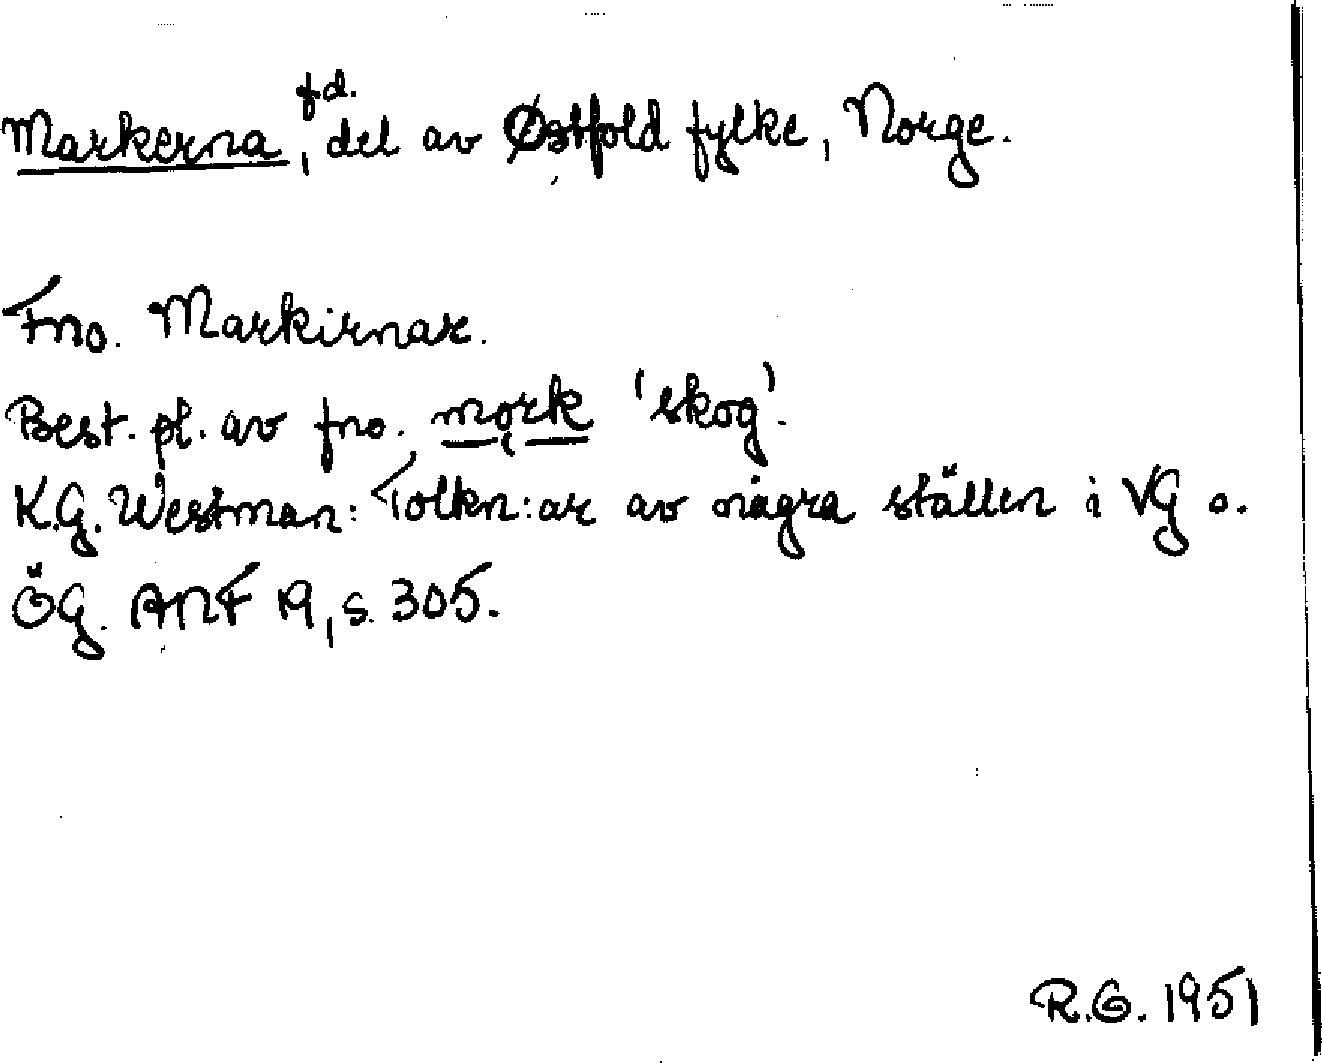 Markerna, f.d. del av Østfold fylke, Norge.
Fno. Markirnar.
Best. pl. av fno. mǫrk 'skog'.
K.G. Westman: Tolkn:ar av några ställen i VG o.
ÖG. ANF 19, s. 305.
R.G. 1951